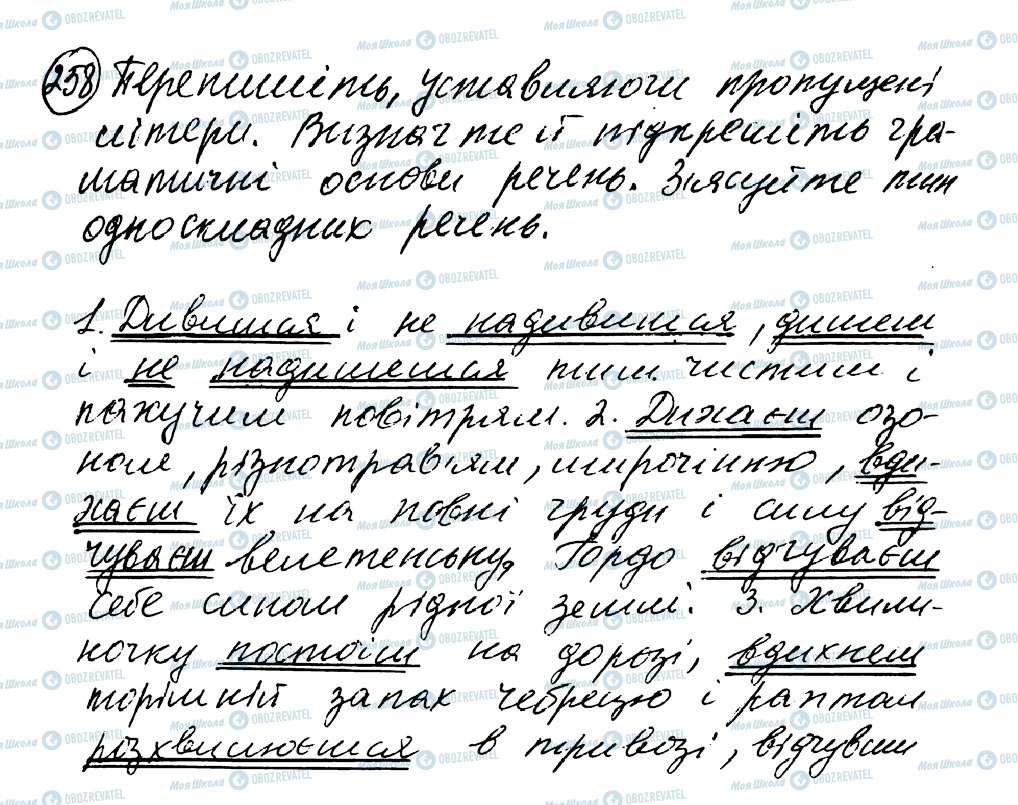 258 Перепишіть, уставляючи пропущені
літери. Визначте й підкресліть гра-
матичні основи речень. З'ясуйте тип
односкладних речень.
1. Дивишся і не надивишся, дишеш
і не надишешся тим чистим і
пахучим повітрям. 2. Дихаєш озо-
ном, різнотрав'ям, широчінню, вди-
хаєш їх на повні груди і силу від-
чуваєш велетенську, Гордо відчуваєш
себе сином рідної землі. 3. Хвили-
ночку постоїш на дорозі, вдихнеш
торішній запах чебрецю і раптом
розхвилюєшся в тривозі, відчувши